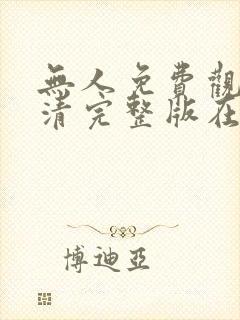 無人免費觀
清完整版在
博迪亞